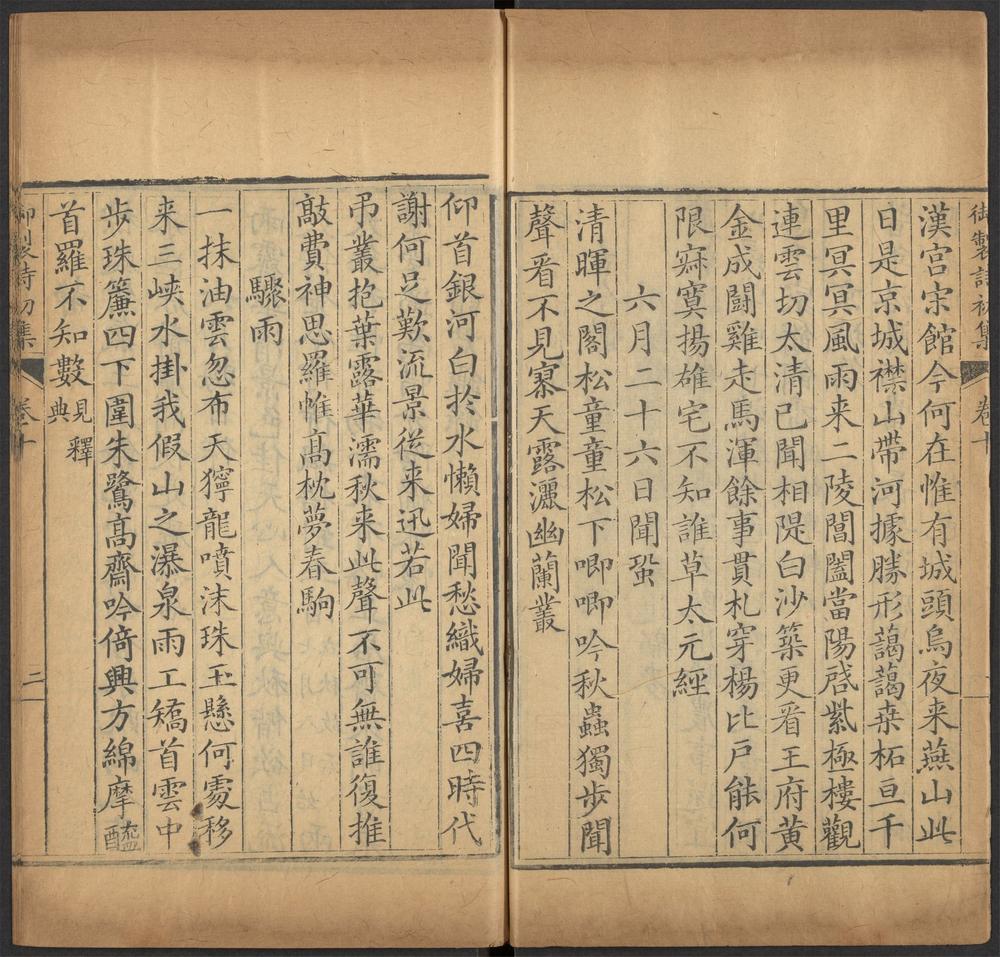 御製詩初集 卷十
漢宫宋館今何在惟有城頭烏夜来燕山此
日是京城襟山帶河據勝形藹藹桒柘亘千
里冥冥風雨来二陵閶闔當陽啓紫極樓觀
連雲切太清已聞相隄白沙築更㸔王府黄
金成闘雞走馬渾餘事貫札穿楊比戸能何
限寂寞揚雄宅不知誰草太元經
六月二十六日聞蛩
清暉之閣松童童松下唧唧吟秋蟲獨步聞
聲㸔不見寥天露灑幽蘭叢
仰首銀河白於水懶婦聞愁織婦喜四時代
謝何足歎流景從来迅若此
弔叢抱葉露華濡秋来此聲不可無誰復推
敲費神思羅帷高枕夢春駒
驟雨
一抹油雲忽布天獰龍噴沫珠玉懸何處移
来三峽水掛我假山之瀑泉雨工矯首雲中
步珠簾四下圍朱鷺高齋吟倚興方綿摩醯
首羅不知數見釋典
御製詩初集 卷十 二